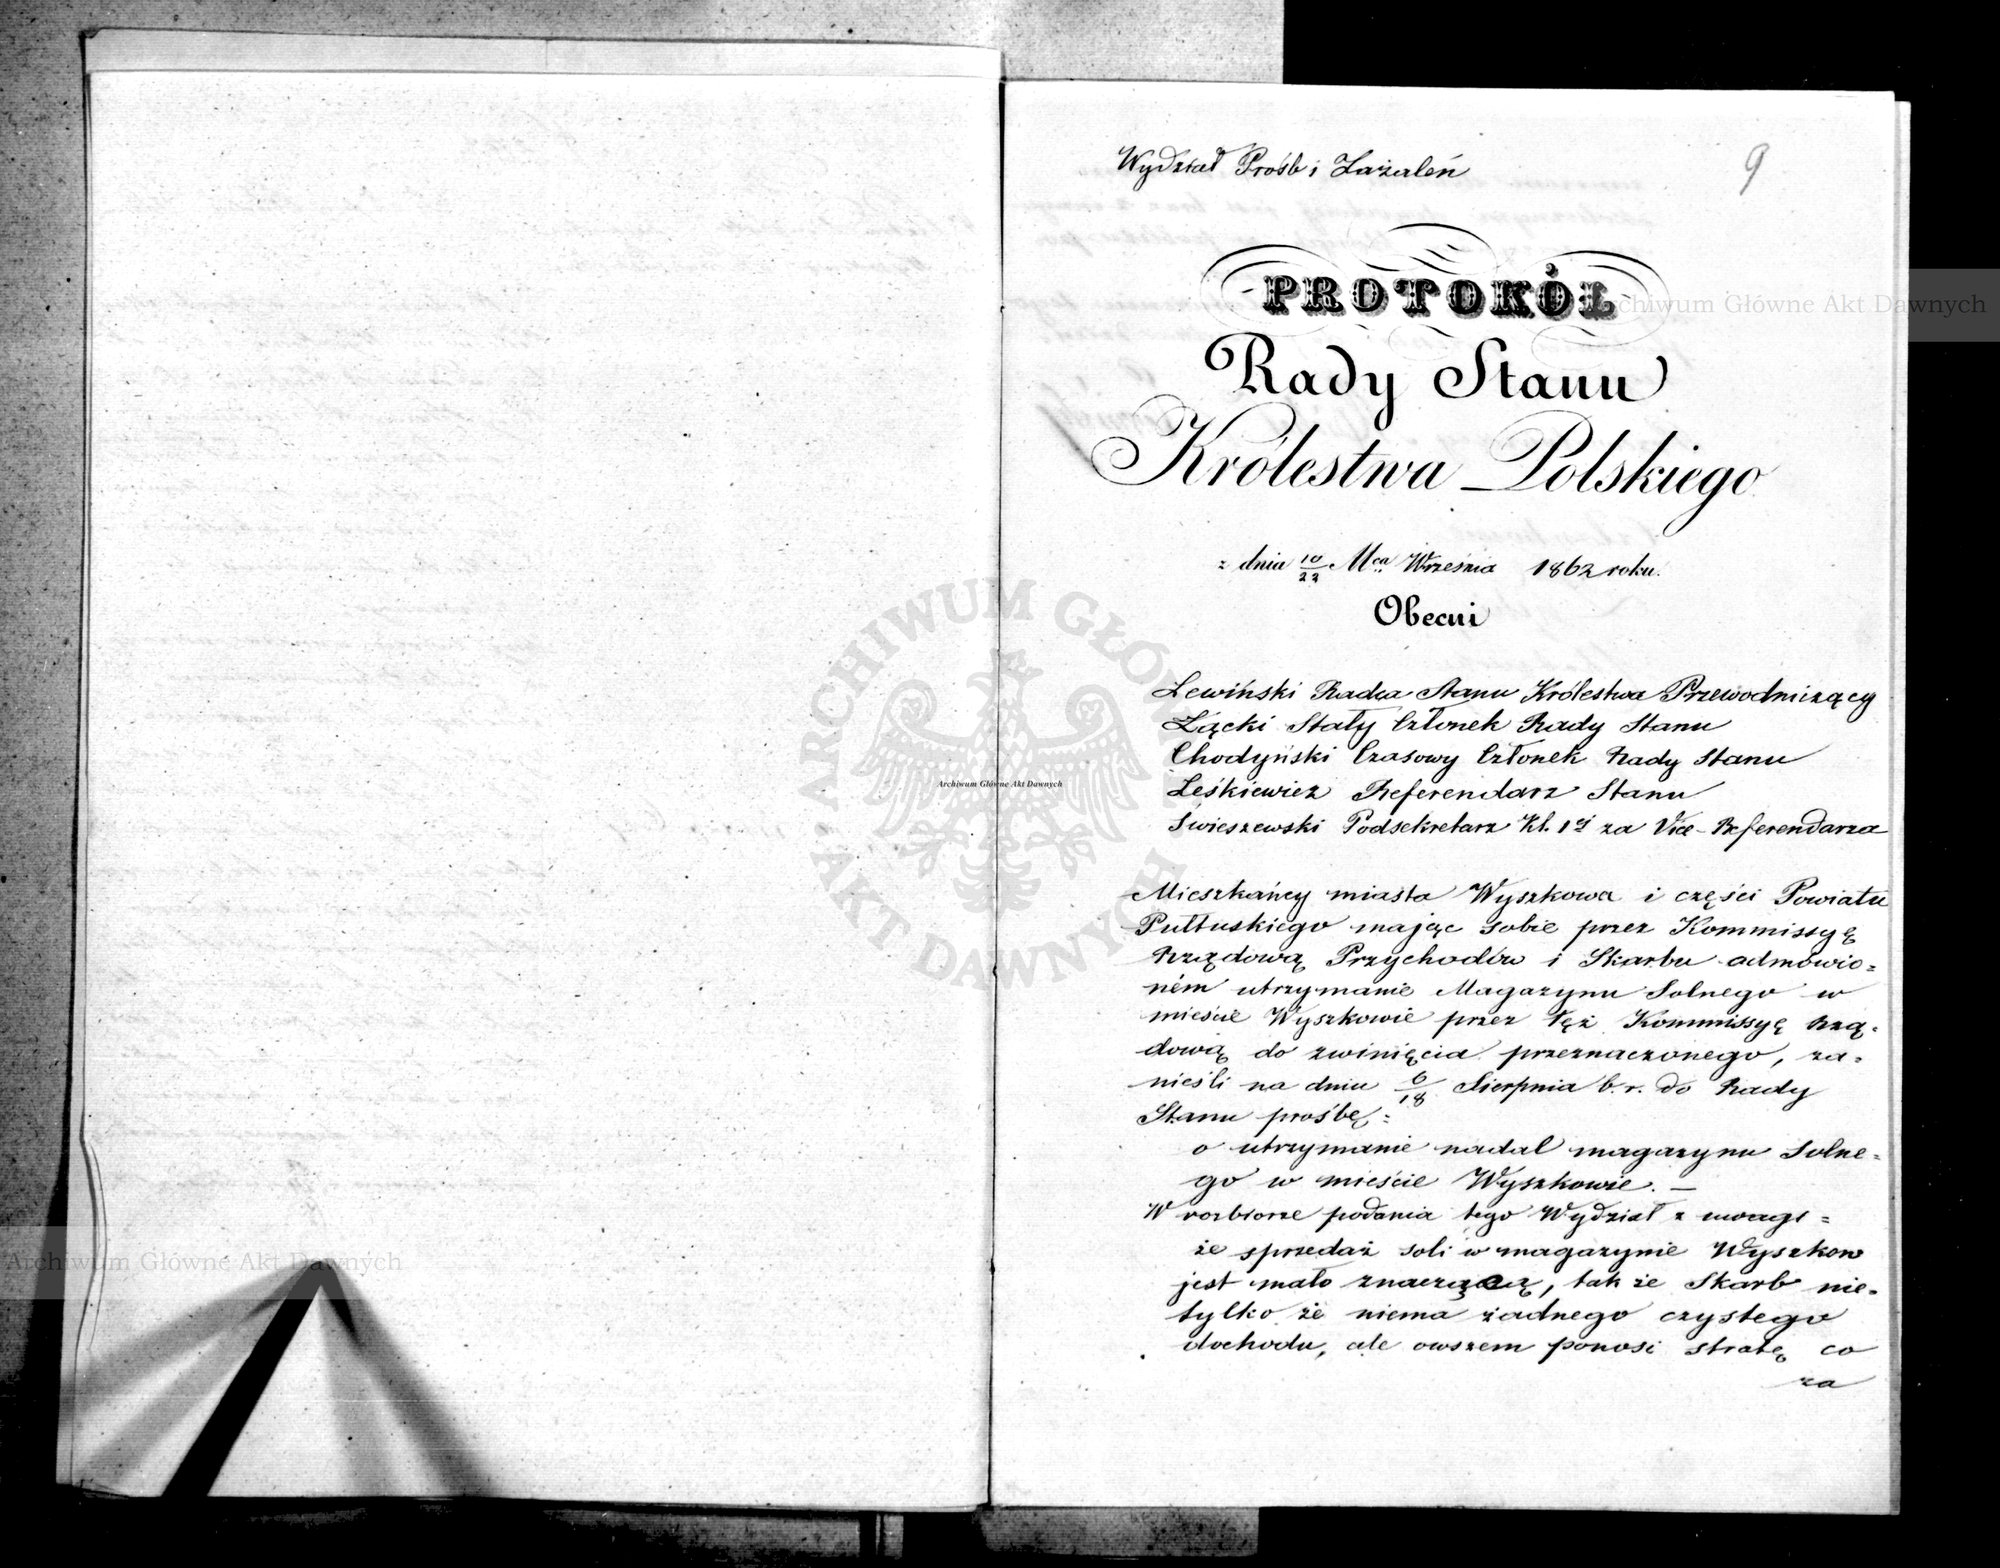 Wydział Próśb i Zażaleń
9
PROTOKÓŁ
Rady Stanu
Królestwa Polskiego
z dnia 10/22 Mca Września 1862 roku.
Obecni
Lewiński Radca Stanu Królestwa Przewodniczący
Łącki Stały Członek Rady Stanu
Chodyński Czasowy Członek Rady Stanu
Leśkiewicz Referendarz Stanu
Swieszewski Podsekretarz Kl. 1ej za Vice-Referendarza
Mieszkańcy miasta Wyszkowa i części Powiatu
Pułtuskiego mając sobie przez Kommissyę
Rządową Przychodów i Skarbu odmówio=
ném utrzymanie Magazynu Solnego w
mieście Wyszkowie przez też Kommissyę Rzą=
dową do zwinięcia przeznaczonego, za=
nieśli na dniu 6/18 Sierpnia b. r. do Rady
Stanu prośbę=
o utrzymanie nadal magazynu solne=
go w mieście Wyszkowie. —
W rozbiorze podania tego Wydział z uwagi=
że sprzedaż soli w magazynie Wyszkow
jest mało znaczącą, tak że Skarb nie=
tylko że niema żadnego czystego
dochodu, ale owszem ponosi stratę co
za
Archiwum Główne Akt Dawnych
ARCHIWUM GŁÓWNE AKT DAWNYCH
Archiwum Główne Akt Dawnych
Archiwum Główne Akt Dawnych